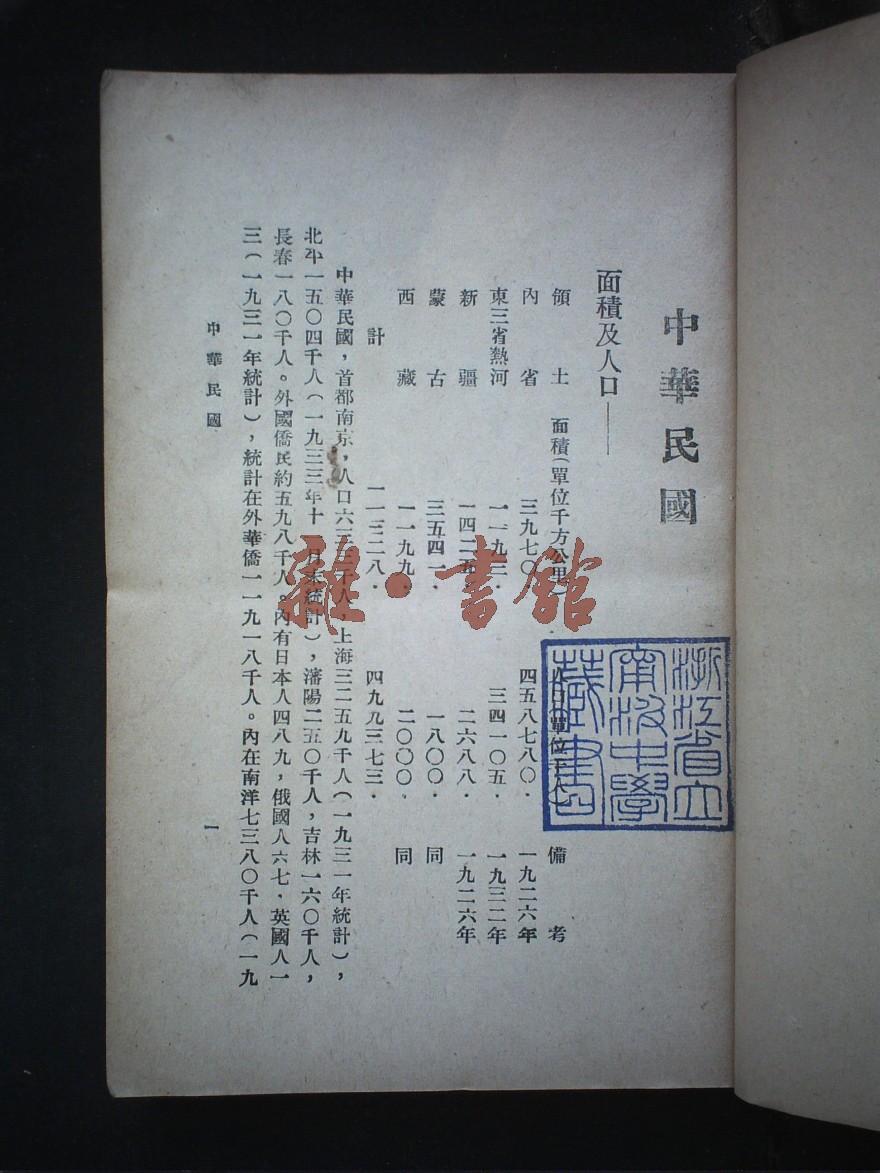 中華民國
面積及人口——
領土 面積(單位千方公里) 人口(單位千人) 備考
內省 三九七〇· 四五八七八〇· 一九二六年
東三省熱河 三四一〇五· 一九三二年
新疆 二六八八· 一九二六年
蒙古 三五四一· 一八〇〇· 同
西藏 一一九九· 二〇〇〇· 同
計 四九九三七三·
中華民國，首都南京，人口六三三千人，上海三二五九千人(一九三一年統計)，
北平一五〇四千人(一九三三年十一月末統計)，瀋陽二五〇千人，吉林一六〇千人，
長春一八〇千人。外國僑民約五九八千人。內有日本人四八九，俄國人六七·英國人一
三(一九三一年統計)，統計在外華僑一一九一八千人。內在南洋七三八〇千人(一九
中華民國
一
浙江省立
甯波中學
藏書
雜·書館